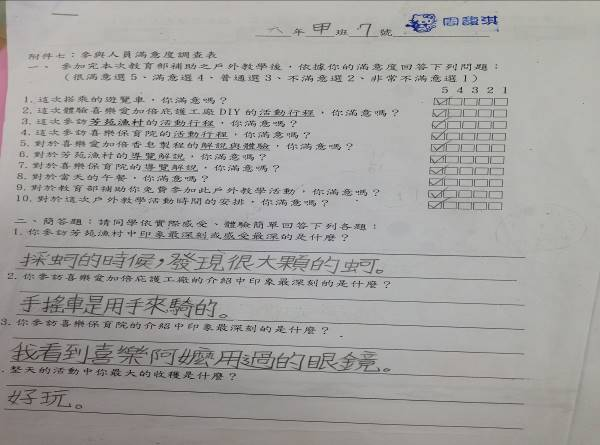 六年甲班7號 周馥淇
附件七:參與人員滿意度調查表
一、參加完本次教育部補助之戶外教學後,依據你的滿意度回答下列問題:
(很滿意選5、滿意選4、普通選3、不滿意選2、非常不滿意選1)
5 4 3 2 1
1.這次搭乘的遊覽車,你滿意嗎?
2.這次體驗喜樂愛加倍庇護工廠DIY的活動行程,你滿意嗎?
3.這次參訪芳苑漁村的活動行程,你滿意嗎?
4.這次參訪喜樂保育院的活動行程,你滿意嗎?
5.對於喜樂愛加倍香皂製程的解說與體驗,你滿意嗎?
6.對於芳苑漁村的導覽解說,你滿意嗎?
7.對於喜樂保育院的導覽解說,你滿意嗎?
8.對於當天的午餐,你滿意嗎?
9.對於教育部補助你免費參加此戶外教學活動,你滿意嗎?
10.對於這次戶外教學活動時間的安排,你滿意嗎?
二、簡答題:請同學依實際感受、體驗簡單回答下列各題:
1.你參訪芳苑漁村中印象最深刻或感受最深的是什麼?
採蚵的時候,發現很大顆的蚵。
2.你參訪喜樂愛加倍庇護工廠的介紹中印象最深刻的是什麼?
手搖車是用手來騎的。
3.你參訪喜樂保育院的介紹中印象最深刻的是什麼?
我看到喜樂阿嬤用過的眼鏡。
.整天的活動中你最大的收穫是什麼?
好玩。